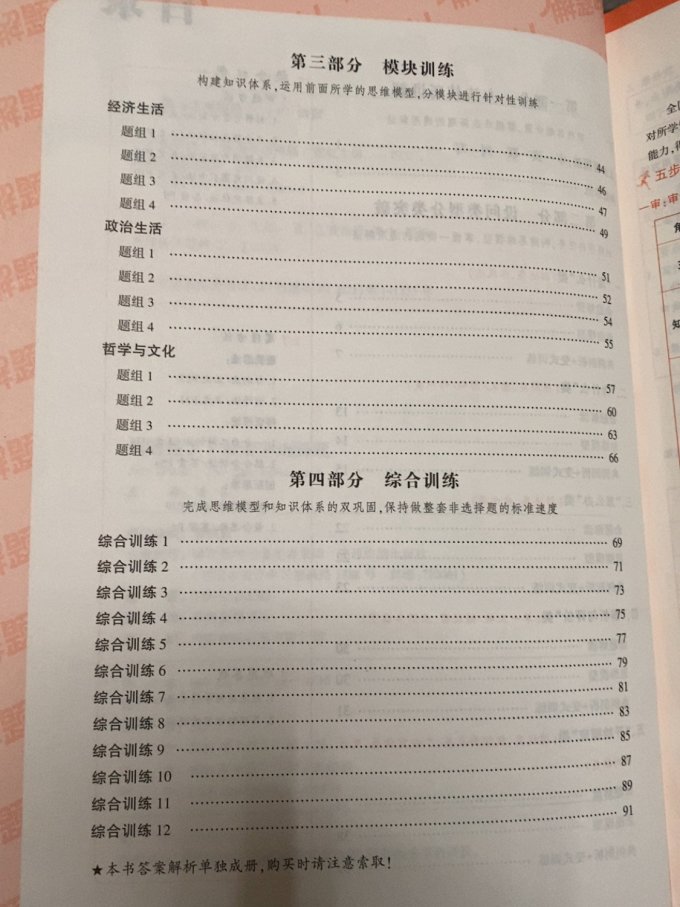 第三部分 模块训练
构建知识体系,运用前面所学的思维模型,分模块进行针对性训练
经济生活
题组 1 44
题组 2 46
题组 3 47
题组 4 49
政治生活
题组 1 51
题组 2 52
题组 3 54
题组 4 55
哲学与文化
题组 1 57
题组 2 60
题组 3 63
题组 4 66
第四部分 综合训练
完成思维模型和知识体系的双巩固,保持做整套非选择题的标准速度
综合训练 1 69
综合训练 2 71
综合训练 3 73
综合训练 4 75
综合训练 5 77
综合训练 6 79
综合训练 7 81
综合训练 8 83
综合训练 9 85
综合训练 10 87
综合训练 11 89
综合训练 12 91
★本书答案解析单独成册,购买时请注意索取!
对所学
能力,得
五步
一审:审